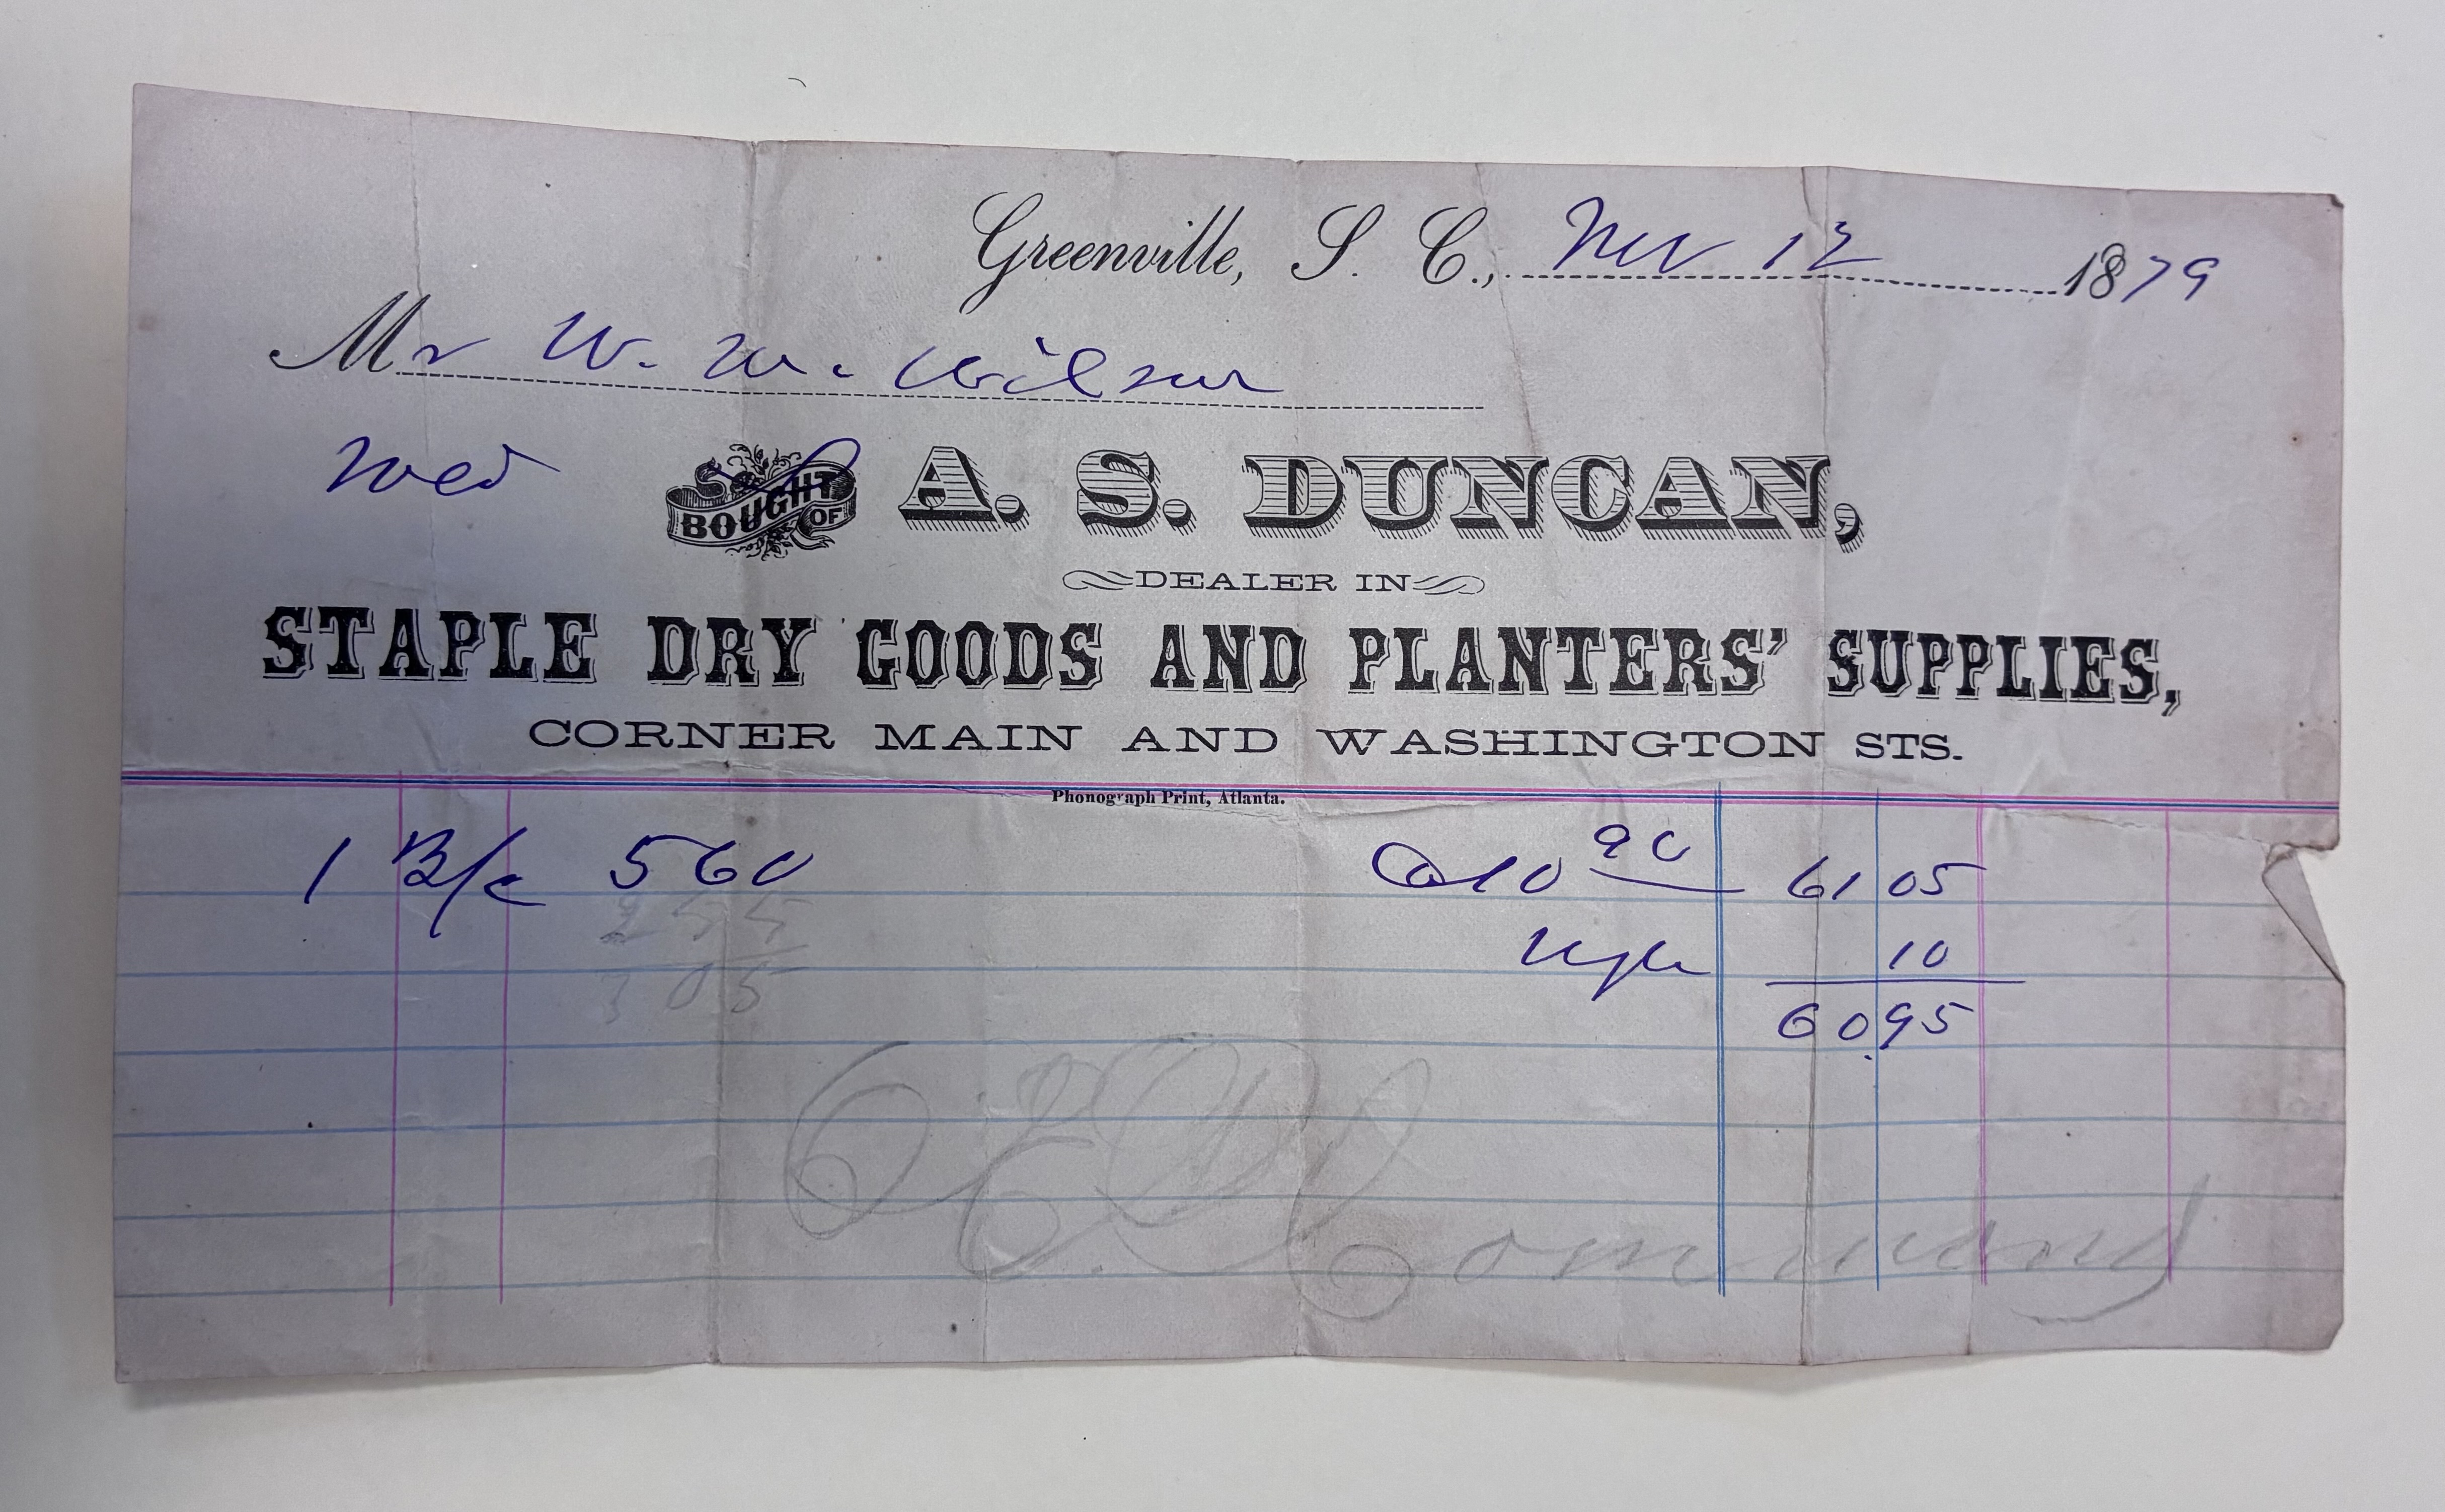 Greenville, S. C., Nov 12 1879
Mr W. W. Wilson
BOUGHT OF A. S. DUNCAN,
DEALER IN
STAPLE DRY GOODS AND PLANTERS' SUPPLIES,
CORNER MAIN AND WASHINGTON STS.
Phonograph Print, Atlanta.
1 B/c 560 @ 10 90 61 05
255 10
305 60 95